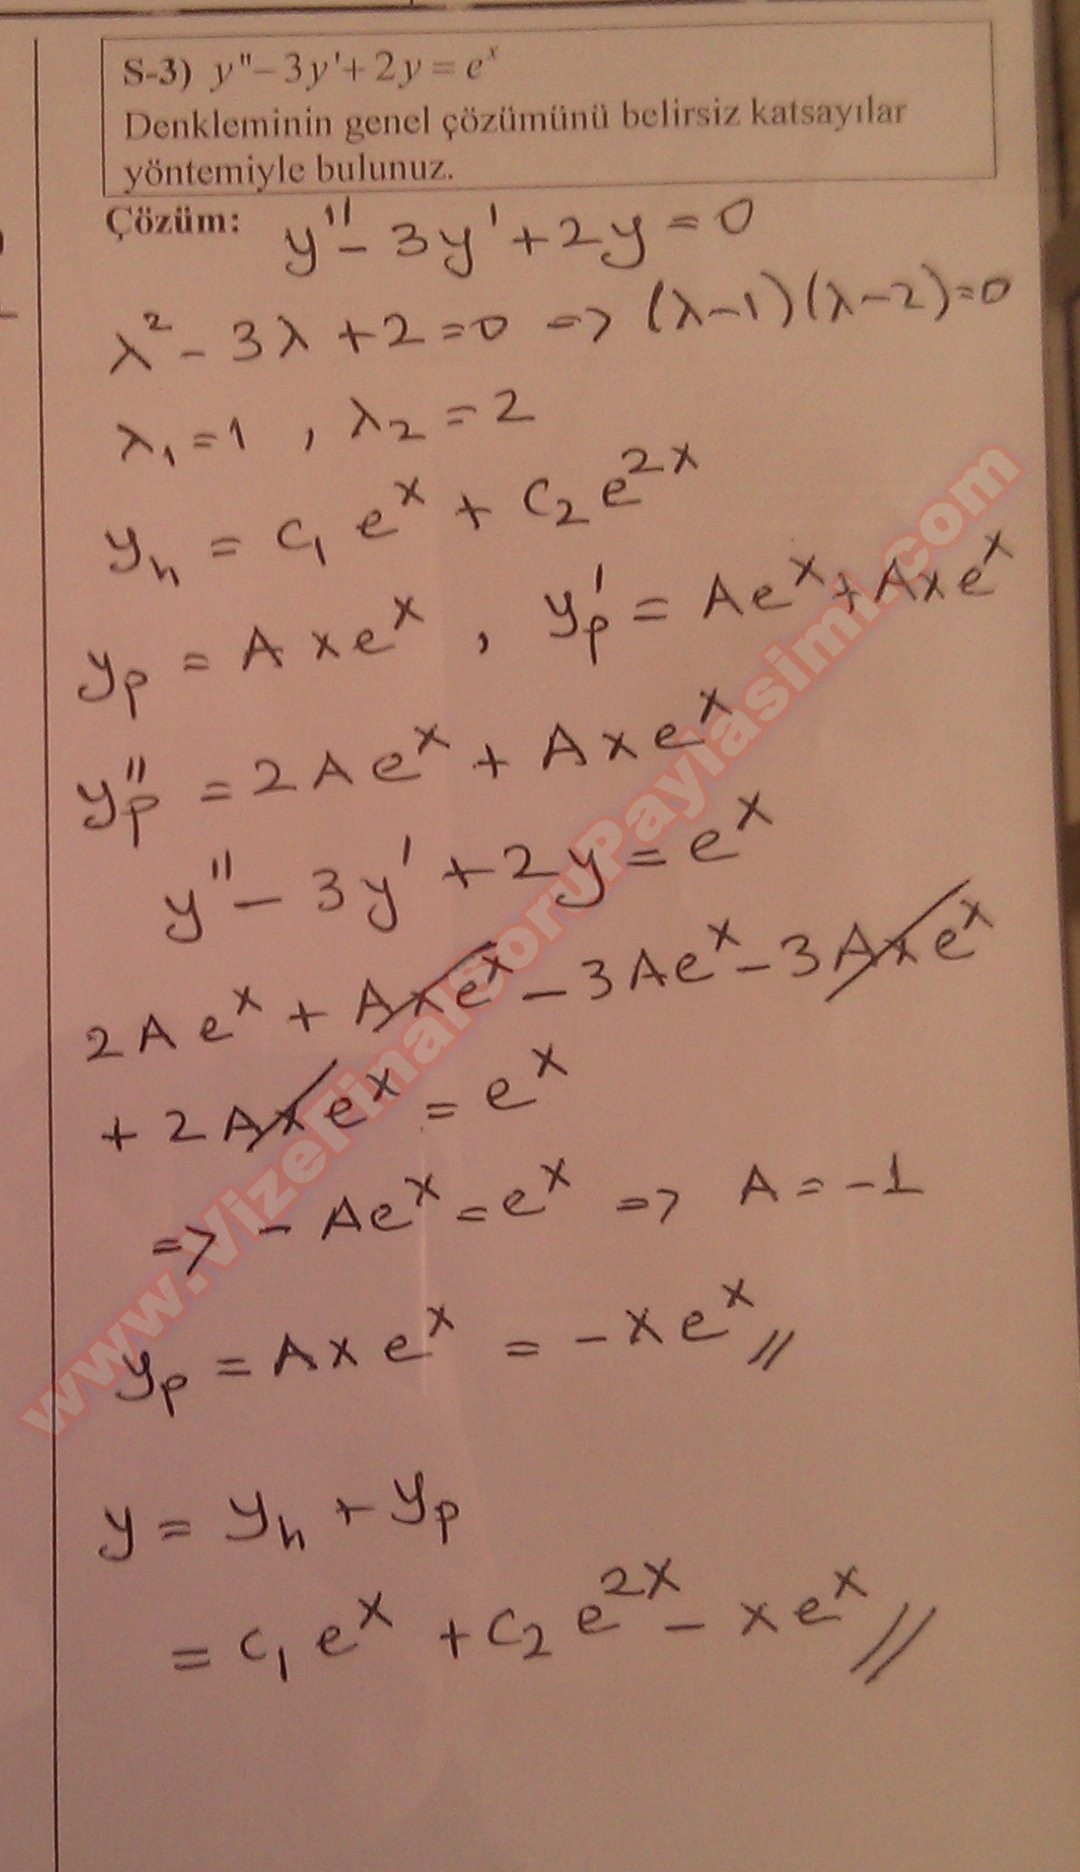 S-3) y"-3y'+2y=eˣ
Denkleminin genel çözümünü belirsiz katsayılar
yöntemiyle bulunuz.
Çözüm: y''-3y'+2y=0
λ²-3λ+2=0 => (λ-1)(λ-2)=0
λ₁=1, λ₂=2
yₕ = c₁eˣ + c₂e²ˣ
yₚ = Axeˣ, yₚ' = Aeˣ+Axeˣ
yₚ'' = 2Aeˣ + Axeˣ
y''-3y'+2y=eˣ
2Aeˣ + Axeˣ - 3Aeˣ - 3Axeˣ
+ 2Axeˣ = eˣ
=> -Aeˣ = eˣ => A = -1
yₚ = Axeˣ = -xeˣ //
y = yₕ + yₚ
= c₁eˣ + c₂e²ˣ - xeˣ //
www.VizeFinalSoruPaylasimi.com